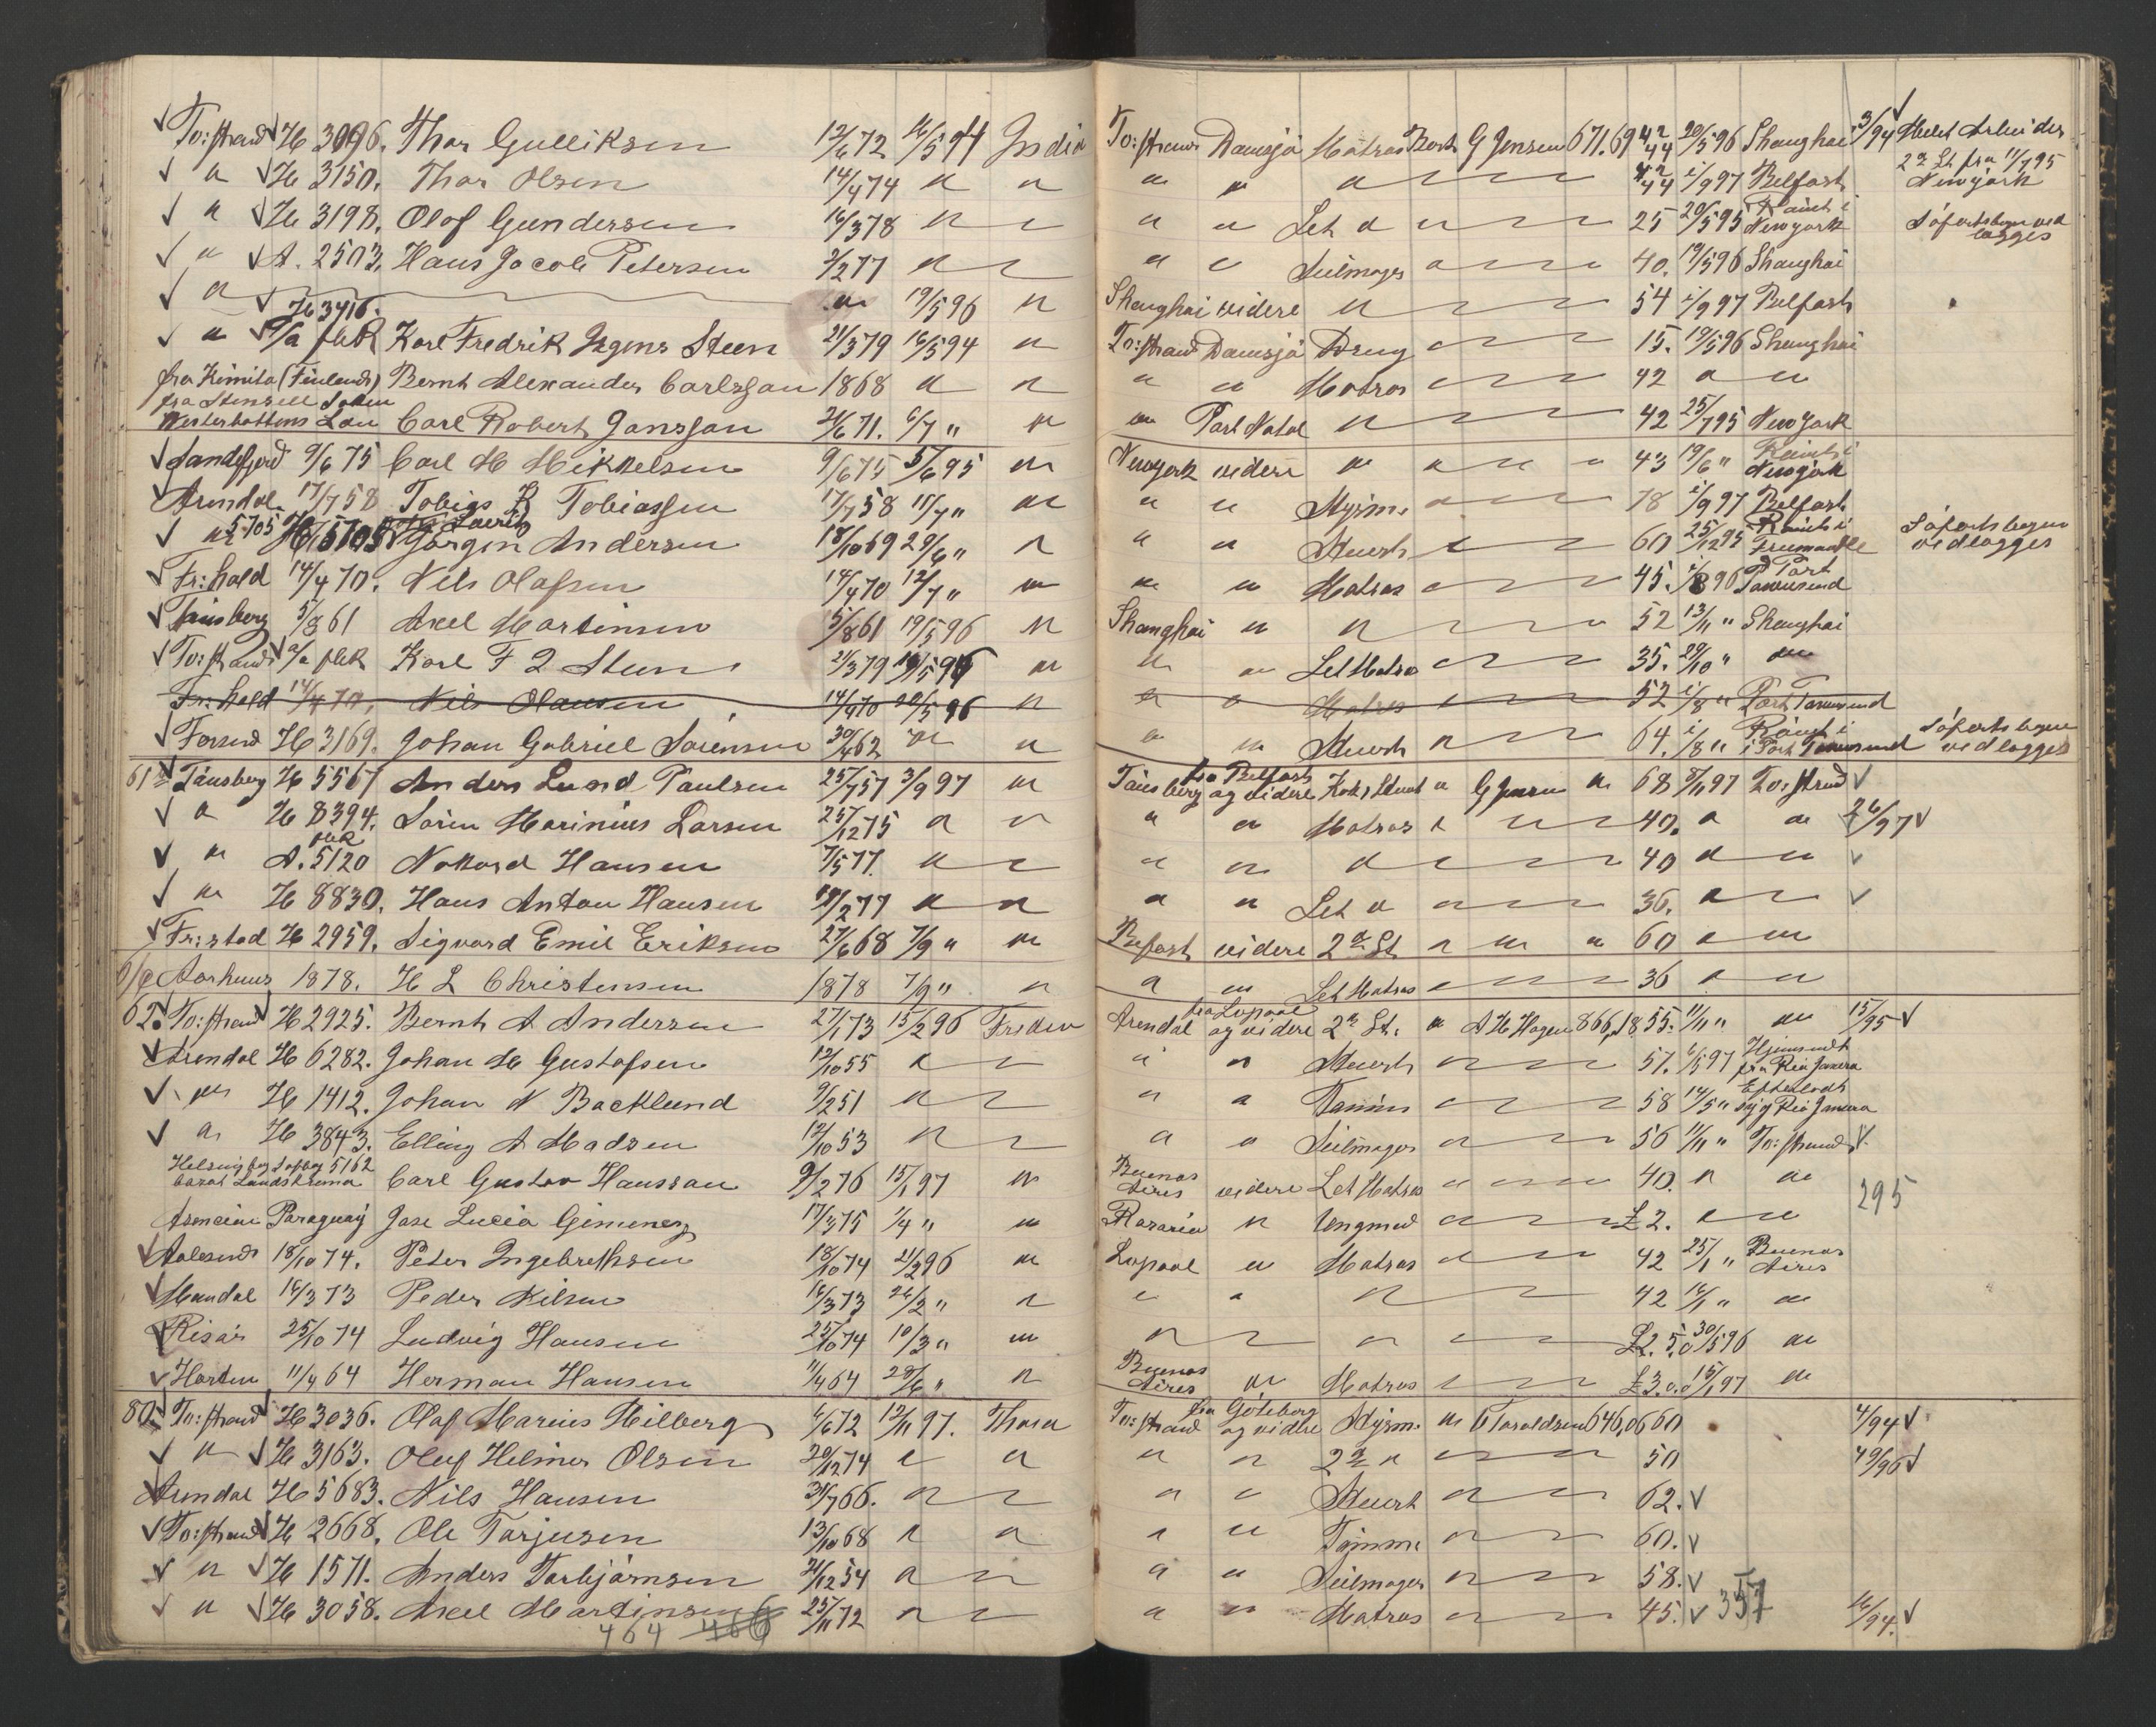 To:strand H 3096. Thor Gulliksen 12/6 72 16/5 94 India To:strand Damsjö Matros Bark G Jensen 671.69 42 44 20/5 96 Shanghai 3/94 Arbeider
" H 3150. Thor Olsen 14/4 74 " " " " " 42 44 i/9 97 Belfast 2den St. fra 11/7 95 Newyork
" H 3198. Olof Gundersen 16/3 78 " " " " Let " " 25 20/5 95 Rømt i Newyork Søfartsbogen vedlægges
" A. 2503. Hans Jacob Petersen 2/2 77 " " " Seilmager " 40. 19/5 96 Shanghai
" H 3416. " 19/5 96 " Shanghai videre " 54 i/9 97 Belfast
" A/a Karl Fredrik Steen 21/3 79 16/5 94 " To:strand Damsjö Dreng 15. 19/5 96 Shanghai
fra Kimito (Finland) Bernt Alexander Carlsson 1868 " " " " Matros 42 " "
fra Stensele Soken
Westerbottens Län Carl Robert Jansson 21/6 71. 6/7 " " " Port Natal " 42 25/7 95 New York
Sandefjord 9/6 75 Carl M Mikkelsen 9/6 75 5/6 95 " Newyork videre " " " " 43 19/6 " Rømt i Newyork
Arendal 17/7 58 Tobias K Tobiassen 17/7 58 11/7 " " " " Styrm. 78 i/9 97 Belfast
" 5705 Lauritz Jørgen Andersen 18/10 69 29/6 " " " " Stuert 60 25/12 95 Rømt i Freemantle Søfartsbogen vedlægges
Fr:hald 14/4 70. Nils Olafsen 14/4 70 12/7 " " " " Matros 45. i/8 96 Port Townsend
Tønsberg 5/8 61 Axel Martinsen 5/8 61 19/5 96 " Shanghai " " 52 13/11 " Shanghai
To:strand A/a Karl F J Steen 21/3 79 19/5 96 " " " Let Matros 35. 29/10 " "
Fr:hald 14/4 70. Nils Olausen 14/4 70 20/5 96 " " " Matros 52 i/8 " Port Townsend
Farsund H 3169. Johan Gabriel Sørensen 30/4 62 " " " " Stuert " 64. i/8 " Rømt i i Port Townsend Søfartsbogen vedlægges
61 Tønsberg H 5567 Anders Lund Paulsen 25/7 57 3/9 97 " Tønsberg fra Belfast og videre Kok & Stuert " G Jensen " 68 8/11 97 To:strand
" H 8394. Søren Marinius Larsen 25/12 75 " " " " Matros " 40. " " 26/97
" A. 5120 Nokard Hansen 7/5 77. " " " " " 40 " "
" H 8830. Hans Anton Hansen 19/2 77 " " " " Let " 36. " "
Fr:stad H 2959. Sigvard Emil Eriksen 27/6 68 7/9 " " Belfast videre 2den St " " " 60 " "
Aarhuus 1878. H L Christensen 1878 7/9 " " " " Let Matros 36 " "
62. To:strand H 2925. Bernt A Andersen 27/1 73 15/2 96 Freden Arendal fra Lopool og videre 2den St. " A H Hagen 866,18 55. 11/11 " " 15/95
Arendal H 6282. Johan M Gustafsen 12/10 55 " " " " Stuert 57. 6/5 97 Hjemsendt fra Rio Janera
" H 1412. Johan N Backlund 9/2 51 " " " " Tømm 58 14/5 " Efterladt syg Rio Janera
" H 3843. Elling A Madsen 12/10 53 " " " " Seilmager 56 11/11 " To:strand
Helsingborg Søfbog 5162
barat Landskrona Carl Gustav Hanssan 9/2 76 15/1 97 " Buenos Aires videre Let Matros 40. " " 295
Asencion Paraguay Jose Lucia Gimenez 17/3 75 1/4 " " Rosario " Ungmand £ 2. " "
Aalesund 18/10 74. Peter Ingebrethsen 18/10 74 21/2 96 " Lopool " Matros 42 25/1 " Buenos Aires
Mandal 16/3 73 Peder Nilsen 16/3 73 26/2 " " " " " 42 16/1 " "
Risør 25/10 74 Ludvig Hansen 25/10 74 10/3 " " " " " £2.5.0 30/5 96 "
Horten 11/4 64 Herman Hansen 11/4 64 28/6 " " Buenos Aires " Matros £3.0.0 15/1 97 "
80. To:strand H 3036. Olaf Marius Milberg 6/6 72 12/11 97. Thora To:strand fra Göteborg og videre Styrm. " O Taraldsen 646,06 60 4/94
" H 3163. Oluf Helmer Olsen 20/12 74 " " " " 2den " 50 49/96
Arendal H 5683. Nils Hansen 31/7 66. " " " " Stuert 62.
To:strand H 2668. Ole Tarjusen 13/10 68 " " " " Tømm. 60.
" H 1571. Anders Torbjørnsen 21/12 54 " " " " Seilmager 58.
" H 3058. Axel Martinsen 25/11 72 " " " " Matros 45. 357 16/94.
464 466